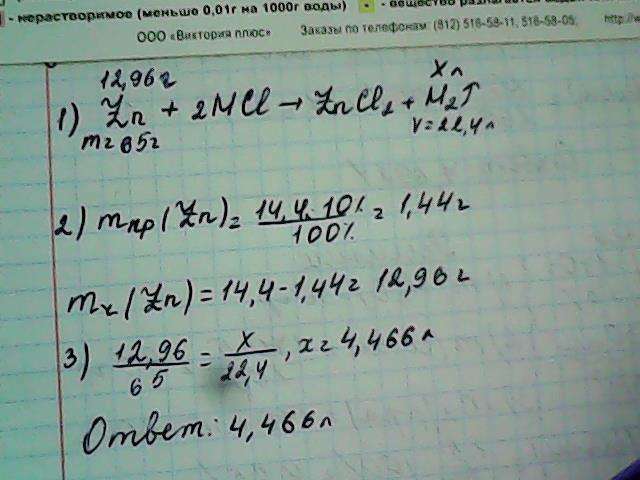 - нерастворимое (меньше 0,01г на 1000г воды) • - вещество разлагается
ООО «Виктория плюс» Заказы по телефонам: (812) 516-58-11, 516-58-05;
12,96 г X л
1) Zn + 2HCl → ZnCl2 + H2↑
m=65г V=22,4л
2) mпр (Zn) = 14,4·10% / 100% = 1,44г
mч (Zn) = 14,4-1,44г 12,96 г
3) 12,96 / 65 = X / 22,4, x = 4,466 л
Ответ: 4,466л